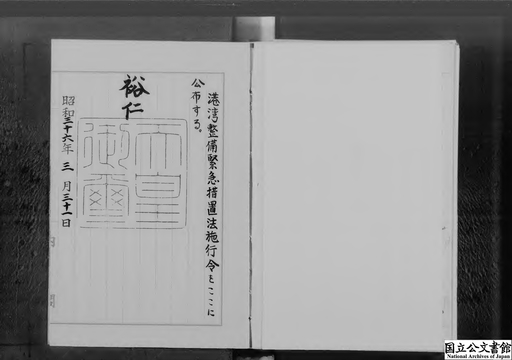 港湾整備緊急措置法施行令をここに
公布する。
裕仁
天皇
御璽
昭和三十六年三月三十一日
国立公文書館
National Archives of Japan